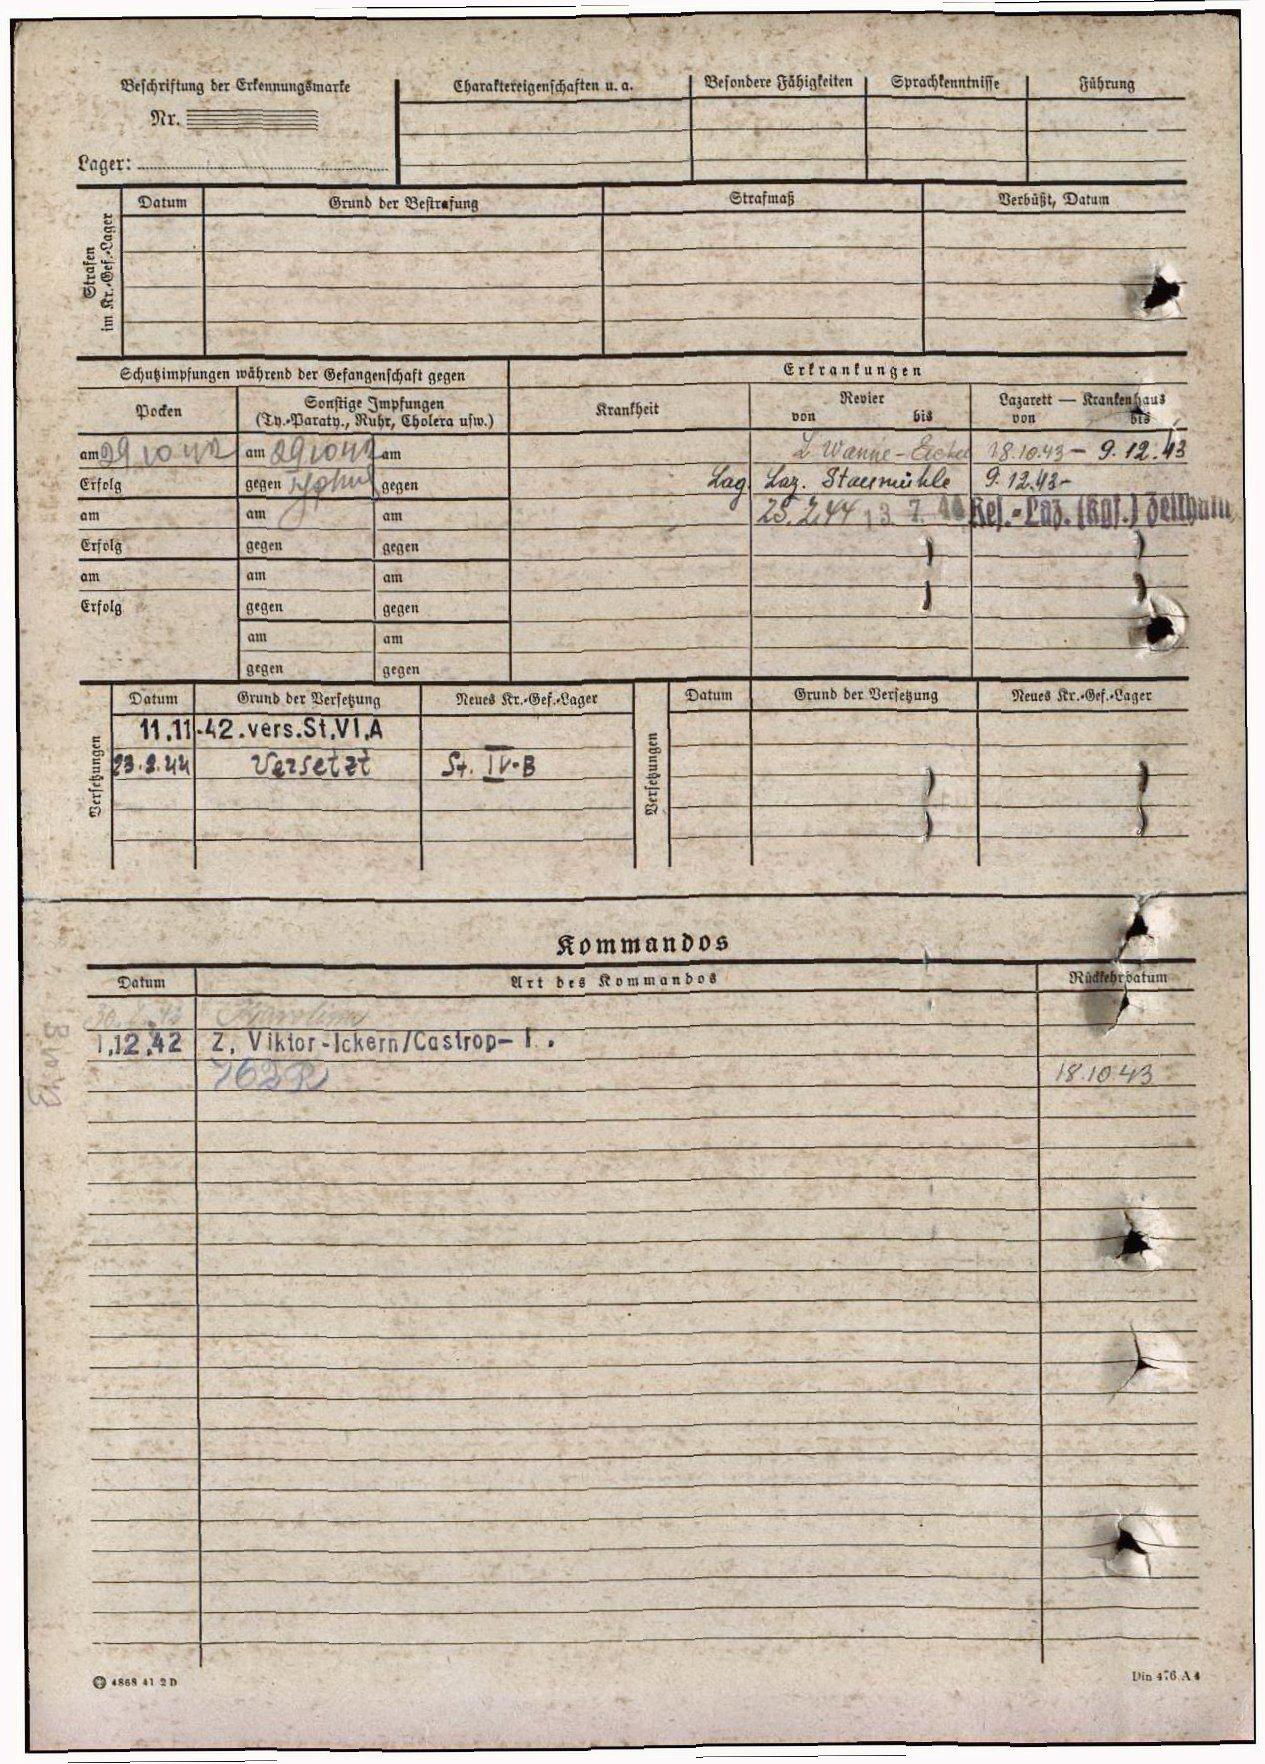 Beschriftung der Erkennungsmarke
Nr.
Lager:
Charaktereigenschaften u. a.
Besondere Fähigkeiten
Sprachkenntnisse
Führung
Strafen im Kr.-Gef.-Lager
Datum
Grund der Bestrafung
Strafmaß
Verbüßt, Datum
Schutzimpfungen während der Gefangenschaft gegen
Erkrankungen
Pocken
Sonstige Impfungen
(Ty.-Paraty., Ruhr, Cholera usw.)
Krankheit
Revier
von bis
Lazarett — Krankenhaus
von bis
am 29 10 42 am 29 10 42 am
L Wanne-Eickel 18.10.43 – 9.12.43
Erfolg gegen gegen
Lag. Laz. Staumühle 9.12.43–
am am am
25.2.44 13. 7. 44 Res.-Laz. (Kgf.) Zeithain
Erfolg gegen gegen
am am am
Erfolg gegen gegen
am am
gegen gegen
Versetzungen
Datum Grund der Versetzung Neues Kr.-Gef.-Lager
11.11.42. vers. St. VI. A
23.2.44 Versetzt St. IV-B
Versetzungen
Datum Grund der Versetzung Neues Kr.-Gef.-Lager
Kommandos
Datum Art des Kommandos Rückkehrdatum
1.12.42 Z. Viktor-Ickern/Castrop- 1.
762 R 18.10.43
4868 41 2 D
Din 476 A 4